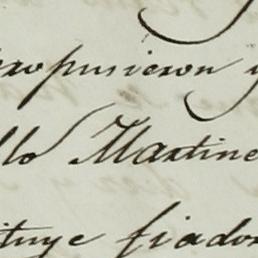 propusieron y
llo Martine
ituye fiador